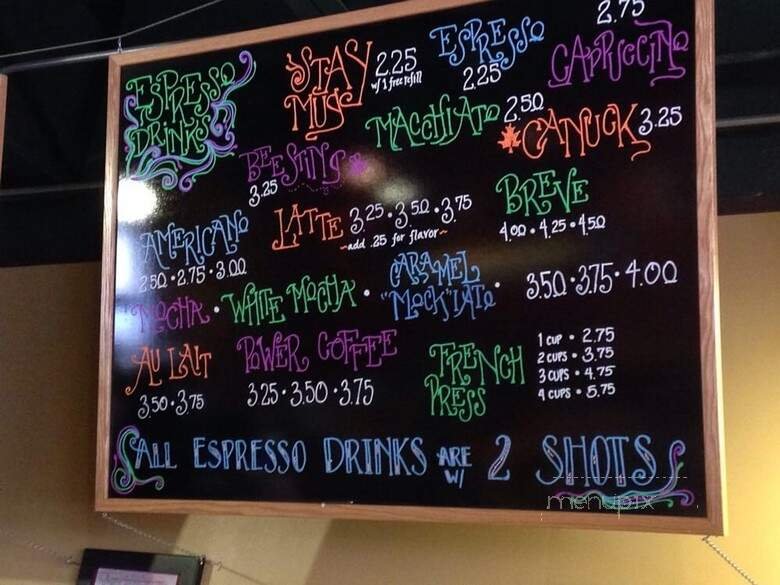 ESPRESSO DRINKS
STAY MUG 2.25
w/ 1 free refill
ESPRESSO
2.25
2.75
CAPPUCCINO
MACCHIATO 2.50
CANUCK 3.25
BEESTING
3.25
LATTE 3.25 • 3.50 • 3.75
~add .25 for flavor~
BREVE
4.00 • 4.25 • 4.50
AMERICANO
2.50 • 2.75 • 3.00
MOCHA • WHITE MOCHA • CARAMEL "MOCK"IATO • 3.50 • 3.75 • 4.00
AU LAIT
3.50 • 3.75
POWER COFFEE
3.25 • 3.50 • 3.75
FRENCH PRESS
1 CUP • 2.75
2 CUPS • 3.75
3 CUPS • 4.75
4 CUPS • 5.75
ALL ESPRESSO DRINKS ARE W/ 2 SHOTS
menupix